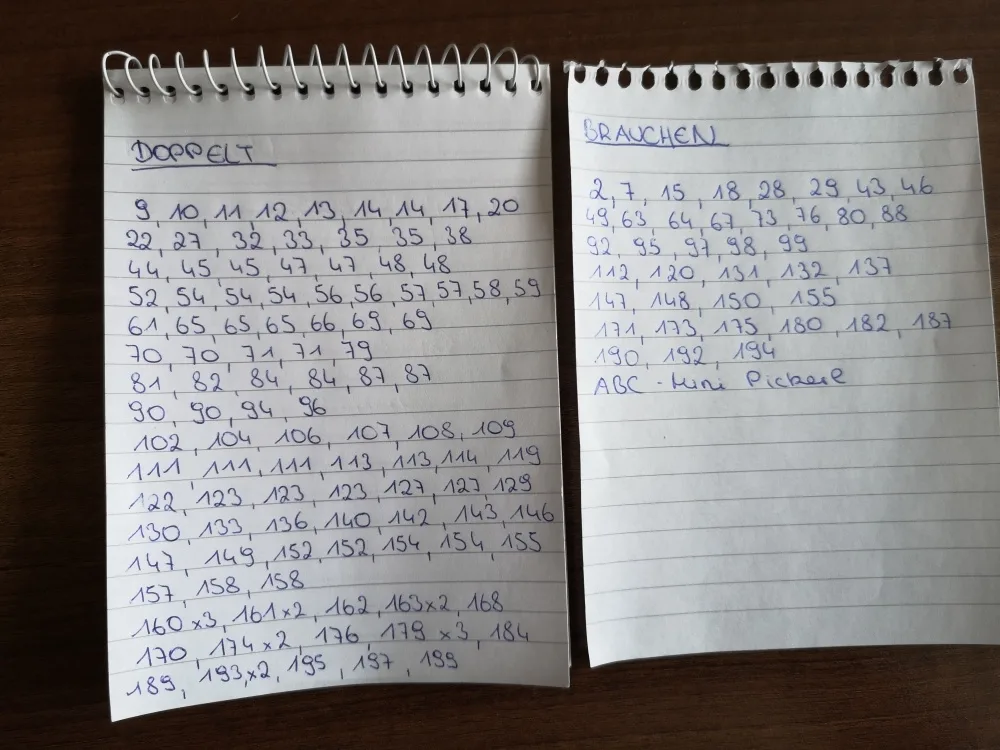 DOPPELT
9, 10, 11, 12, 13, 14, 14, 17, 20
22, 27, 32, 33, 35, 35, 38
44, 45, 45, 47, 47, 48, 48
52, 54, 54, 54, 56, 56, 57, 57, 58, 59
61, 65, 65, 65, 66, 69, 69
70, 70, 71, 71, 79
81, 82, 84, 84, 87, 87
90, 90, 94, 96
102, 104, 106, 107, 108, 109
111, 111, 111, 113, 113, 114, 119
122, 123, 123, 123, 127, 127, 129
130, 133, 136, 140, 142, 143, 146
147, 149, 152, 152, 154, 154, 155
157, 158, 158
160 x3, 161x2, 162, 163x2, 168
170, 174x2, 176, 179 x3, 184
189, 193,x2, 195, 197, 199
BRAUCHEN
2, 7, 15, 18, 28, 29, 43, 46
49, 63, 64, 67, 73, 76, 80, 88
92, 95, 97, 98, 99
112, 120, 131, 132, 137
147, 148, 150, 155
171, 173, 175, 180, 182, 187
190, 192, 194
ABC - Mini Pickerl